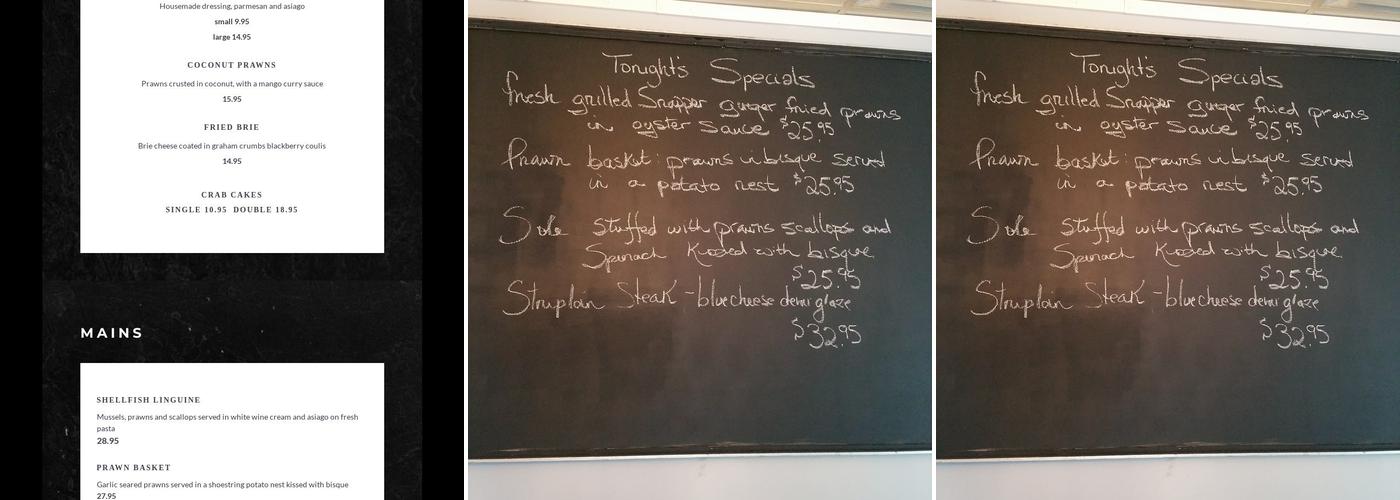 Housemade dressing, parmesan and asiago
small 9.95
large 14.95
COCONUT PRAWNS
Prawns crusted in coconut, with a mango curry sauce
15.95
FRIED BRIE
Brie cheese coated in graham crumbs blackberry coulis
14.95
CRAB CAKES
SINGLE 10.95 DOUBLE 18.95
MAINS
SHELLFISH LINGUINE
Mussels, prawns and scallops served in white wine cream and asiago on fresh
pasta
28.95
PRAWN BASKET
Garlic seared prawns served in a shoestring potato nest kissed with bisque
27.95
Tonight's Specials
fresh grilled Snapper ginger fried prawns
in oyster sauce $25.95
Prawn basket: prawns in bisque served
in a potato nest $25.95
Sole stuffed with prawns scallops and
Spinach Kissed with bisque
$25.95
Striploin Steak - blue cheese demi glaze
$32.95
Tonight's Specials
fresh grilled Snapper ginger fried prawns
in oyster sauce $25.95
Prawn basket: prawns in bisque served
in a potato nest $25.95
Sole stuffed with prawns scallops and
Spinach Kissed with bisque
$25.95
Striploin Steak - blue cheese demi glaze
$32.95